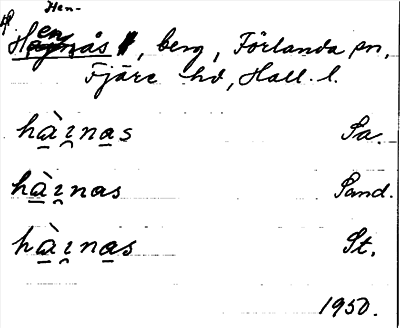 Hen-
Henåsås, berg, Förlanda sn,
Fjäre hd, Hall. l.
hà̱ı̯na̱s Sa.
hà̱ı̯nas Sand.
hà̱ı̯na̱s St.
1950.